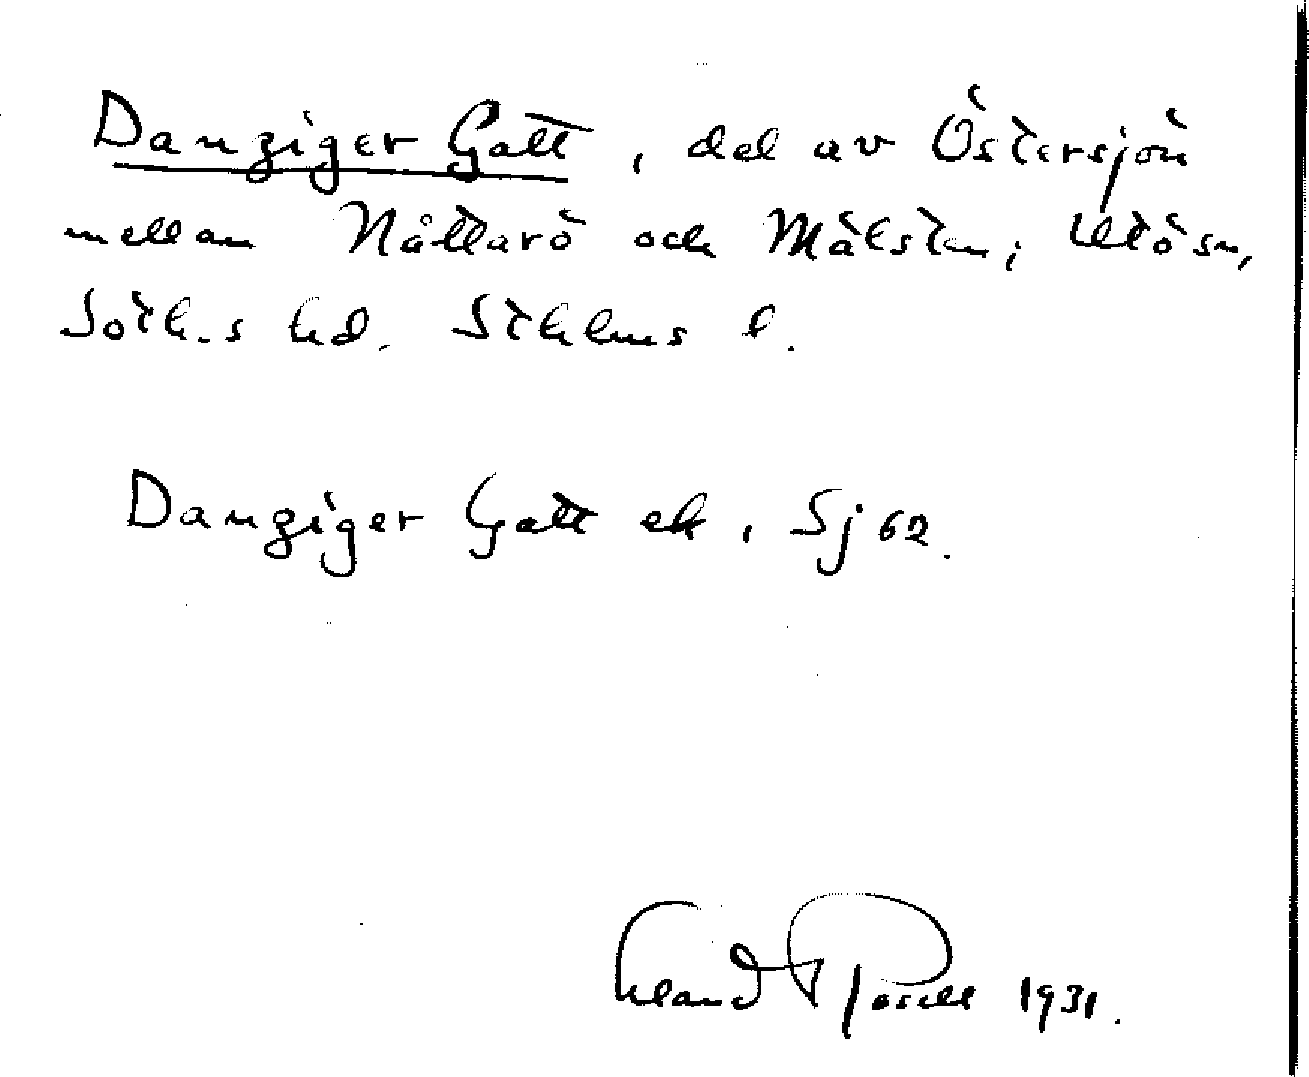 Danziger Gatt, del av Östersjön
mellan Nåttarö och Mälsten, Utö sn,
Soth.s hd. Sthlms l.
Danziger Gatt ek, Sj 62.
Erland Rosell 1931.